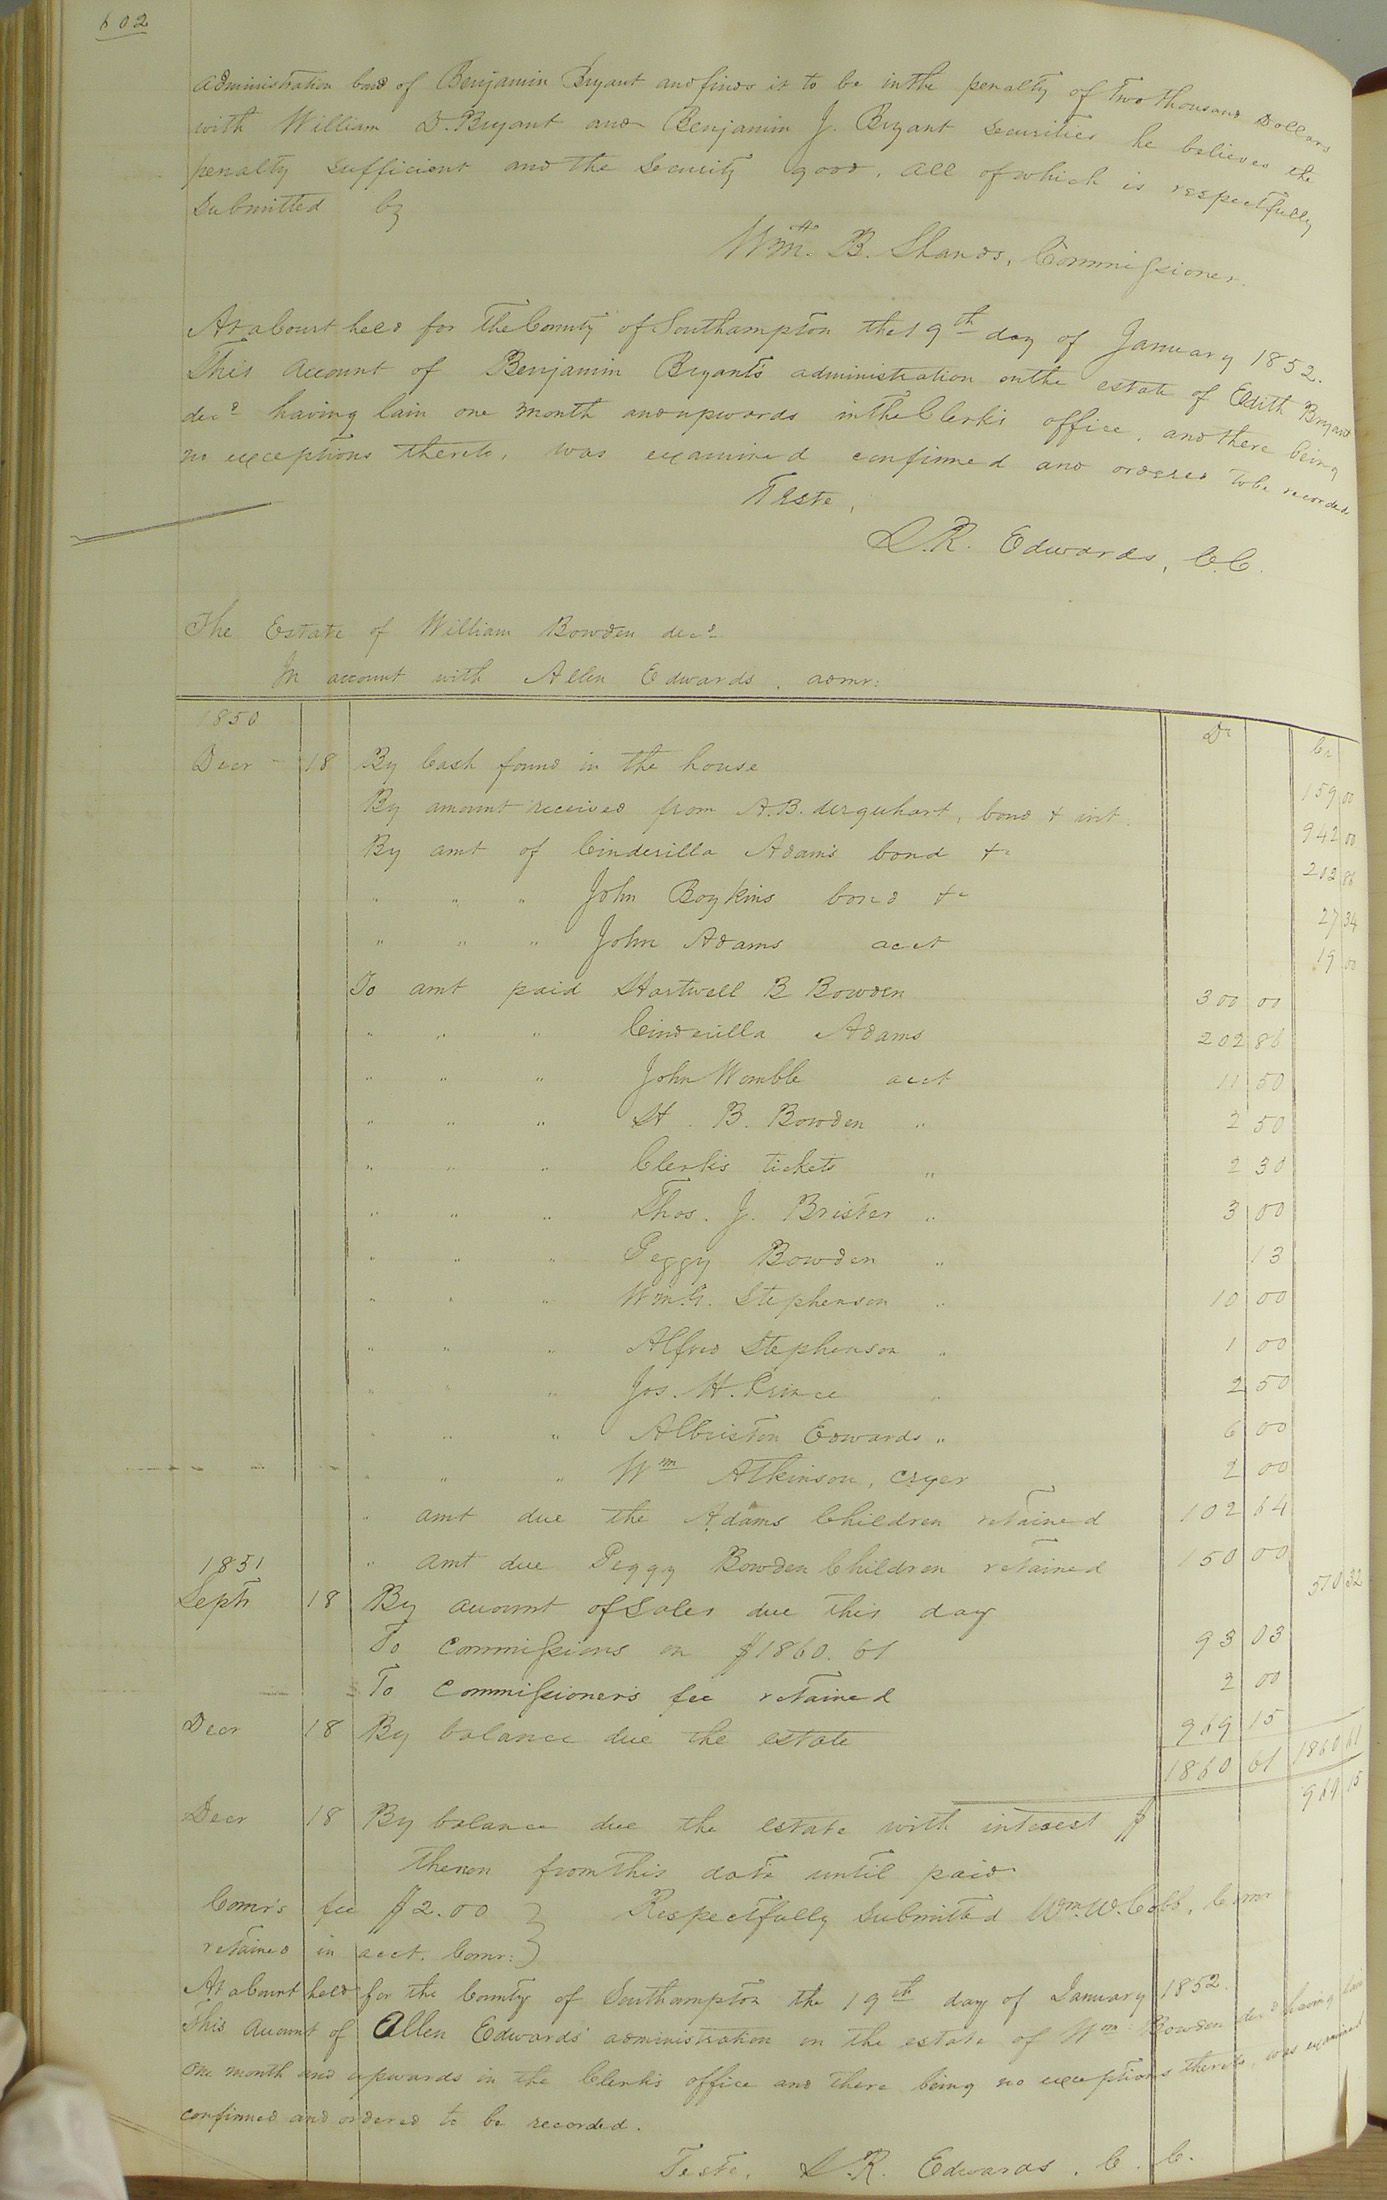 602
administration bond of Benjamin Bryant and finds it to be in the penalty of Two thousand Dollars
with William D. Bryant and Benjamin J. Bryant securities he believes the
penalty sufficient and the security good, all of which is respectfully
submitted by
Wm. B. Shands, Commissioner.
At a Court held for the County of Southampton the 19th day of January 1852.
This account of Benjamin Bryant's administration on the estate of Edith Bryant
decd having lain one month and upwards in the Clerk's office, and there being
no exceptions thereto, was examined confirmed and ordered to be recorded
Teste,
L.R. Edwards, C.C.
The Estate of William Bowden decd
In account with Allen Edwards, admr:
1850 Dr Cr
Decr 18 By Cash found in the house 159 00
By amount received from A.B. Urquhart, bond & int. 942 00
By amt of Cinderilla Adams bond &c 202 86
" " " John Boykins bond &c 27 34
" " " John Adams acct 19 00
To amt paid Hartwell B Bowden 300 00
" " " Cinderilla Adams 202 86
" " " John Womble acct 11 50
" " " H. B. Bowden " 2 50
" " " Clerk's tickets " 2 30
" " " Thos. J. Brister " 3 00
" " " Peggy Bowden " 13
" " " Wm. G. Stephenson " 10 00
" " " Alfred Stephenson " 1 00
" " " Jos. H. Prince " 2 50
" " " Albriston Edwards " 6 00
" " " Wm Atkinson, cryer 2 00
" amt due the Adams Children retained 102 64
1851 " amt due Peggy Bowden Children retained 150 00
Septr 18 By account of Sales due this day 510 32
To Commissions on $1860.61 93 03
To Commissioner's fee retained 2 00
Decr 18 By balance due the estate 969 15
1860 61 1860 61
Decr 18 By balance due the estate with interest $ 969 15
thereon from this date until paid
Comr's fee $2.00 } Respectfully submitted Wm. W. Cobb, Comr
retained in acct. Comr: }
At a Court held for the County of Southampton the 19th day of January 1852.
This account of Allen Edwards' administration on the estate of Wm Bowden decd having lain
one month and upwards in the Clerk's office and there being no exceptions thereto, was examined
confirmed and ordered to be recorded.
Teste, L.R. Edwards, C.C.